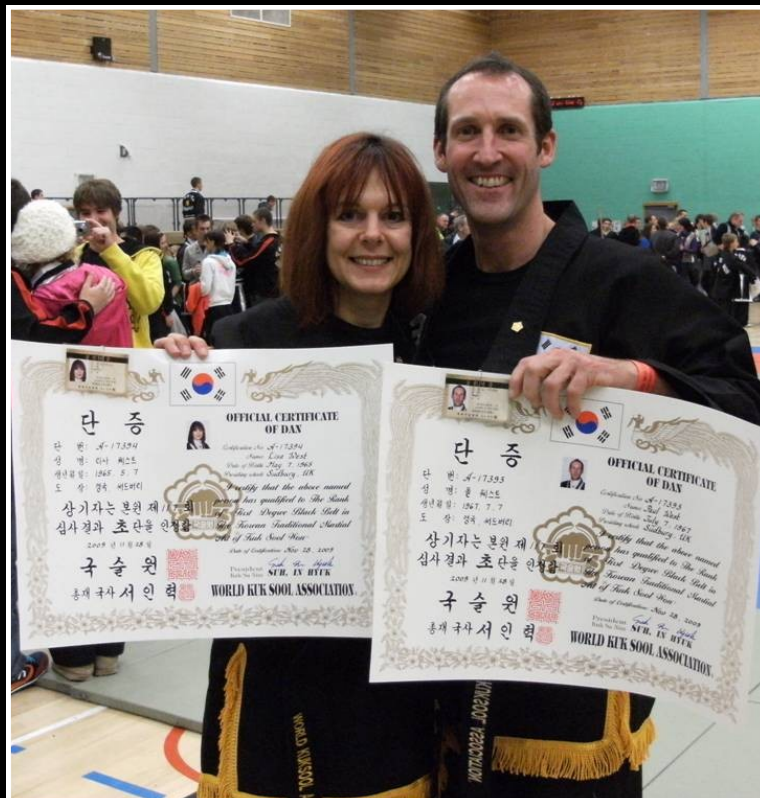 단 증
단 번: A-17394
성 명: 리사 웨스트
생년월일: 1965. 5. 7
도 장: 영국, 써드버리
상기자는 본원 제
회
심사결과 초단을 인정함
2009 년 11월 28 일
국 술 원
총재 국사 서 인 혁
OFFICIAL CERTIFICATE
OF DAN
Certification No: A-17394
Name: Lisa West
Date of Birth: May 7, 1965
Sudbury, UK
I certify that the above named
person has qualified to The Rank
of First Degree Black Belt in
The Korean Traditional Martial
Art of Kuk Sool Won
Date of Certification: Nov 28, 2009
President
Kuk Sa Nim SUH, IN HYUK
WORLD KUK SOOL ASSOCIATION
단 증
단 번: A-17393
성 명: 폴 웨스트
생년월일: 1967. 7. 7
도 장: 영국, 써드버리
상기자는 본원 제
회
심사결과 초단을 인정함
2009 년 11월 28일
국 술 원
총재 국사 서 인 혁
OFFICIAL CERTIFICATE
OF DAN
Certification No: A-17393
Name: Paul West
Date of Birth: July 7, 1967
Sudbury, UK
I certify that the above named
person has qualified to The Rank
of First Degree Black Belt in
The Korean Traditional Martial
Art of Kuk Sool Won
Date of Certification: Nov 28, 2009
President
Kuk Sa Nim SUH, IN HYUK
WORLD KUK SOOL ASSOCIATION
WORLD KUKSOOL
KUKSOOL ASSOCIATION
D